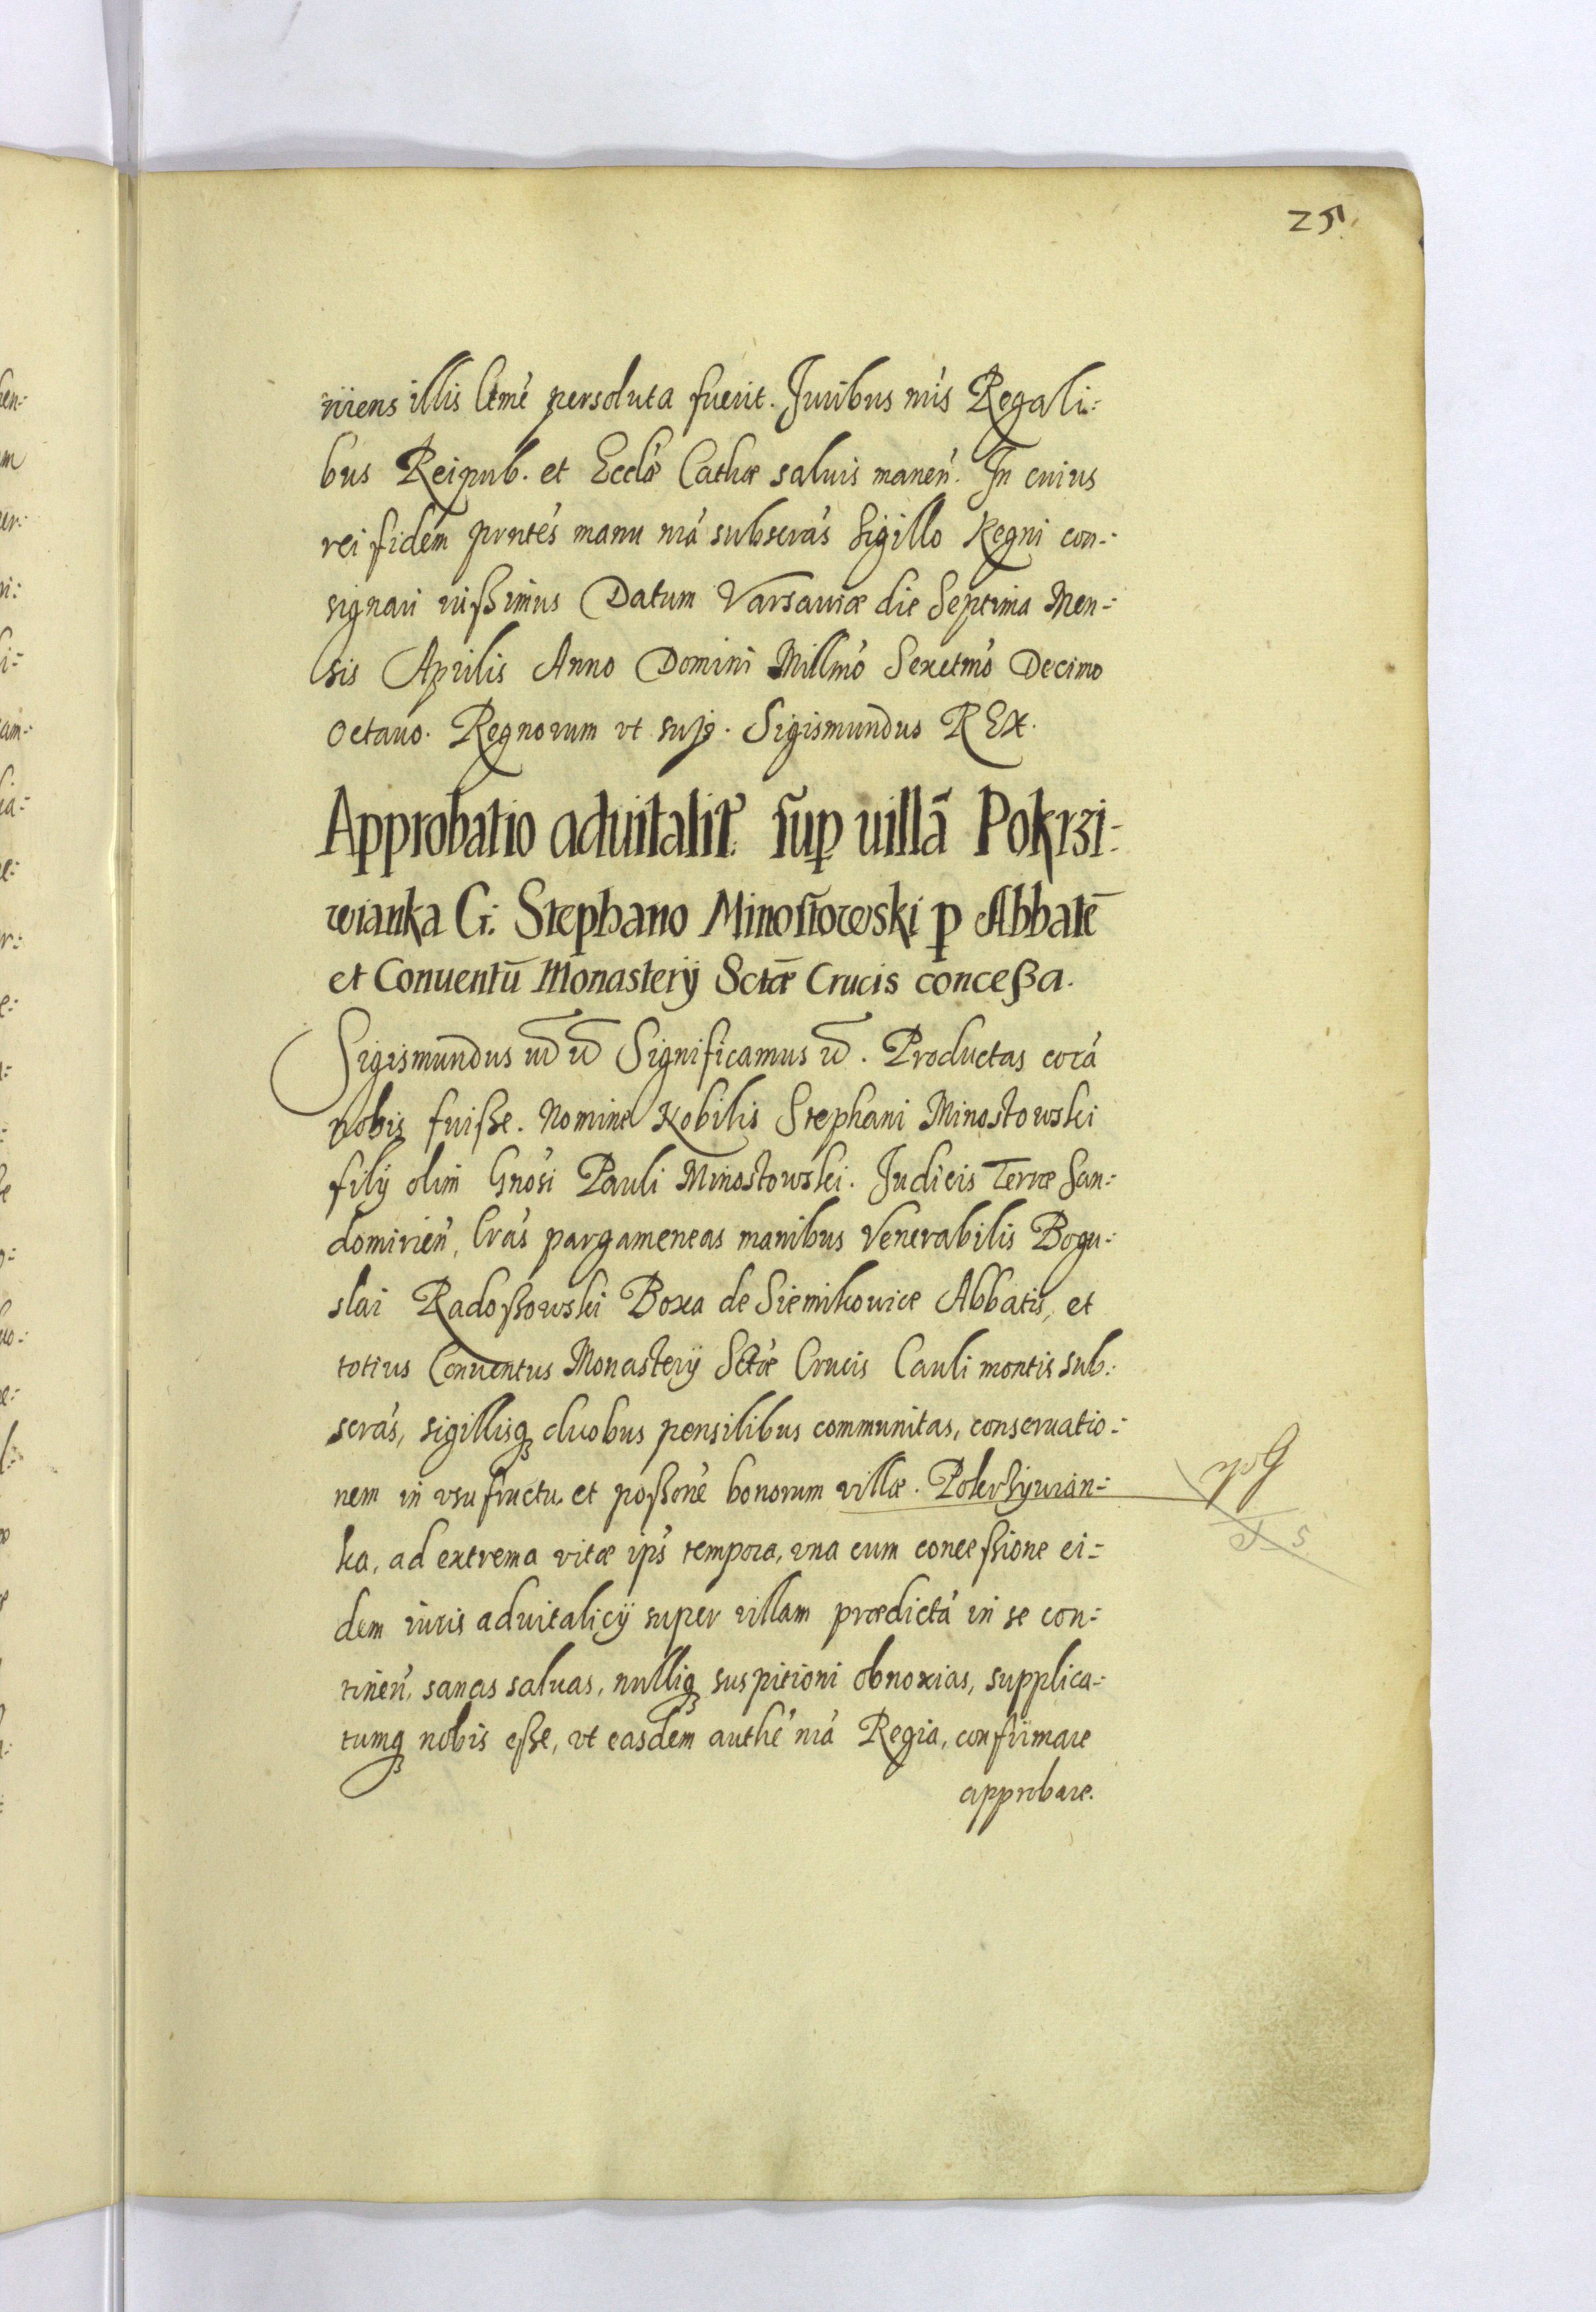 25
niens illis ltme persoluta fuerit. Juribus nris Regali:
bus Reipub. et Ecclæ Cathæ saluis manen. In cuius
rei fidem pnntes manu nra subscras Sigillo Regni con:
signari iussimus Datum Varsauiæ die Septima Men:
sis Aprilis Anno Domini Millmo Sexctmo Decimo
octauo. Regnorum vt sup. Sigismundus REX.
Approbatio aduitalit: sup uillā Pokrzi:
wianka G: Stephano Minostowski p Abbatē
et Conuentū Monasterÿ Sctæ Crucis conceßa.
Sigismundus Significamus. Productas corá
nobis fuiße. Nomine Nobilis Stephani Minostowski
filÿ olim Gnosi Pauli Minostowski. Judicis Terræ San:
domirień, lras pargameneas manibus Venerabilis Bogu:
slai Radoßowski Boxa de Siemikowice Abbatis, et
totius Conuentus Monasterÿ Sctæ Crucis Caluimontis sub:
scras, sigillisq duobus pensilibus communitas, conseruatio:
nem in vsufructu et poßone bonorum villæ. Pokrsÿwian:
ka, ad extrema vitæ ips tempora, vna cum conceßione ei:
dem iuris aduitalicÿ super villam prædictá in se con:
tineń, sanas saluas, nulliq suspitioni obnoxias, supplica:
tumq nobis eße, vt easdem authe nra Regia, confirmare
approbare.